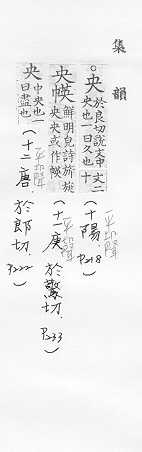 集韻
。央於良切說文中央也一曰久也文二十
(十陽. P218)
平聲
央㡕鮮明皃詩旂旐央央或作㡕
(十二庚 於驚切. P233)
平聲
央中央也一曰盡也
(十一唐. 於郎切. P222)
平聲